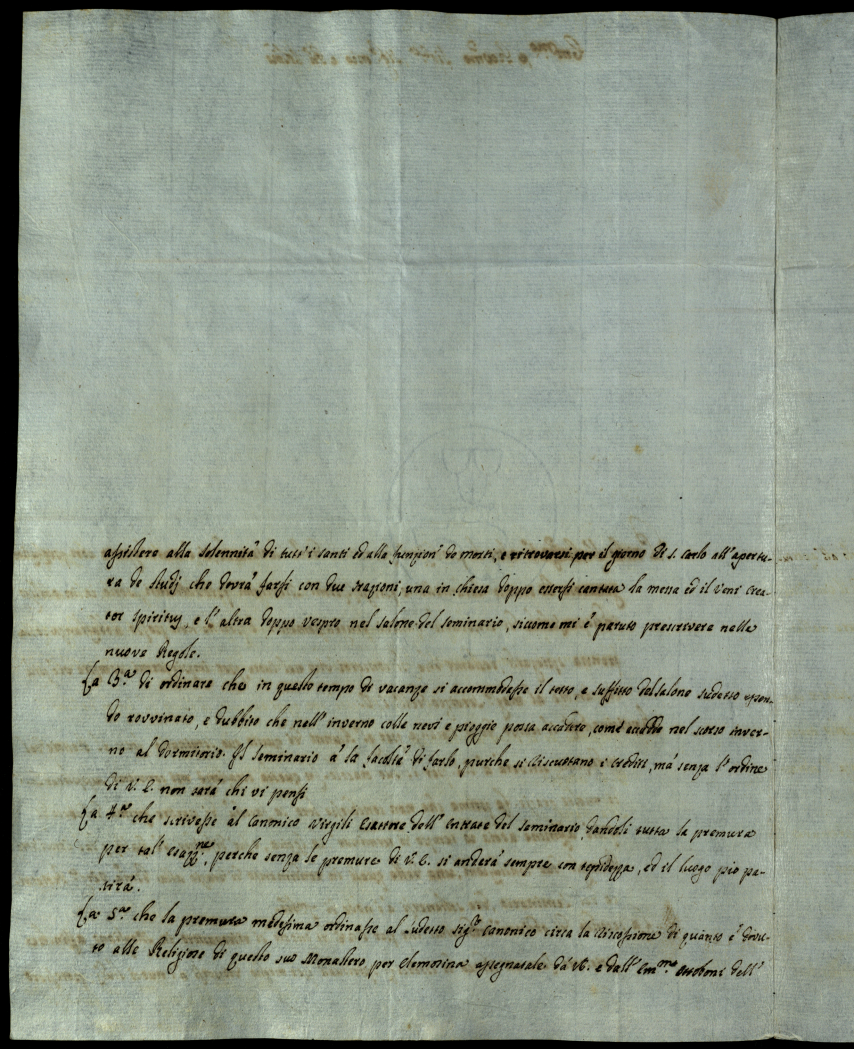 assistere alla solennità di tutt'i santi ed alla funzion' de morti, e ritrovarsi per il giorno di S. Carlo all'apertu-
ra de studij che dovrà farsi con due orazioni, una in chiesa doppo essersi cantata la messa ed il Veni Crea-
tor Spiritus, e l'altra doppo vespro nel salone del seminario, siccome mi è paruto prescrivere nelle
nuove Regole.
La 3.a di ordinare che in questo tempo di vacanze si accommodasse il tetto, e suffitto del salone sudetto essen-
do rovvinato, e dubbito che nell'inverno colle nevi e pioggie possa accadere, come accadde nel scorso inver-
no al dormitorio. Il seminario à la facoltà di farlo, purche si riscuotano i crediti, mà senza l'ordine
di V. E. non sarà chi vi pensi
La 4.a che scrivesse al Canonico Virgili Esattore dell'Entrate del seminario dandoli tutta la premura
per tal'esazz.ne, perche senza le premure di V. E. si anderà sempre con tepidezza, ed il luogo pio pa-
tirà.
La 5.a che la premura medesima ordinasse al sudetto sig.r Canonico circa la riscossione di quanto è dovu-
to alle Religiose di questo suo Monastero per elemosina assegnatale da V.E. e dall'Em.mo Ottoboni dell'